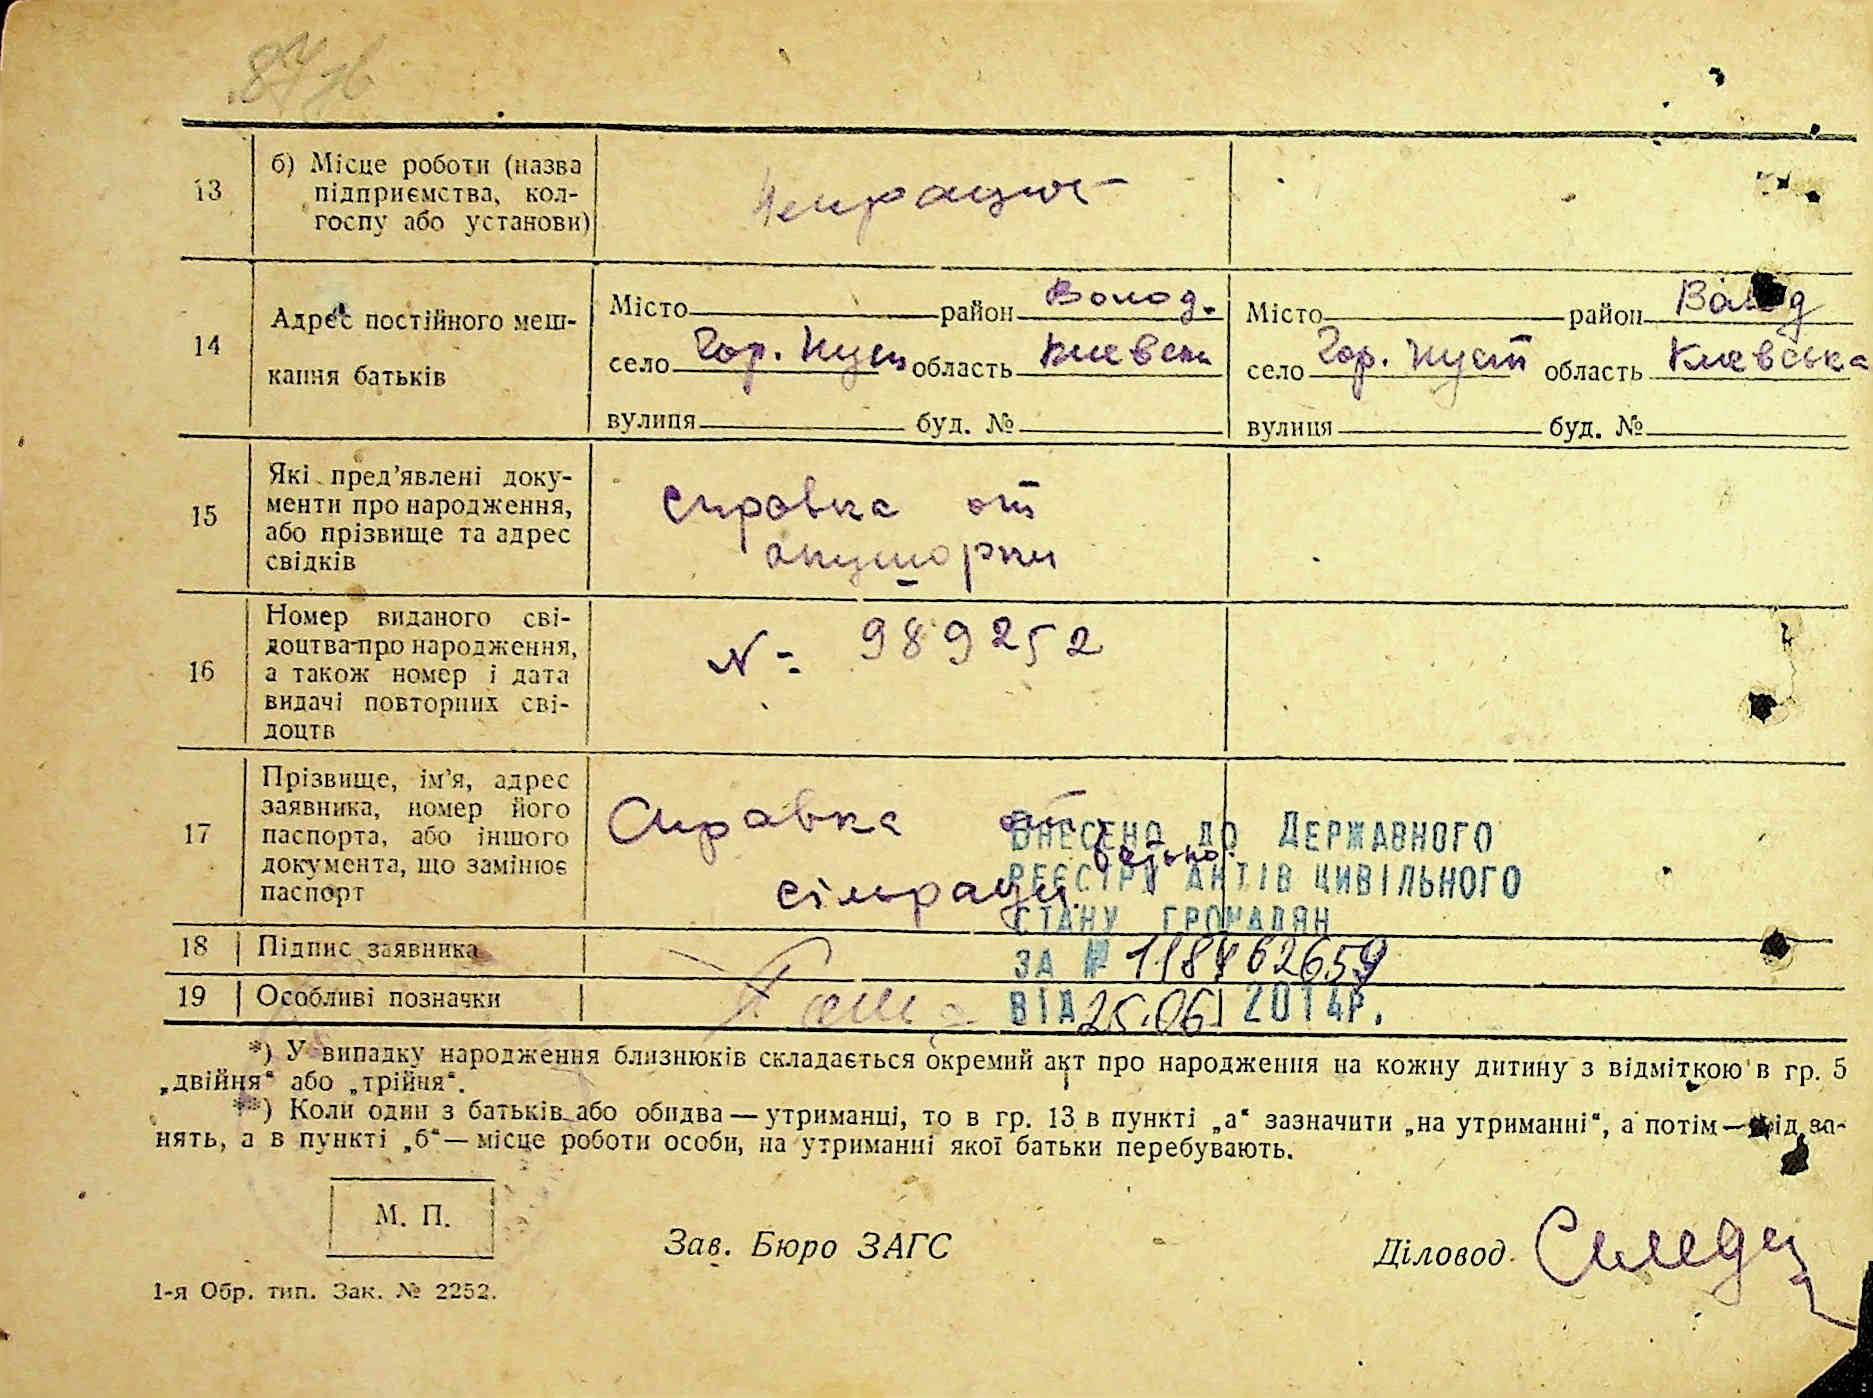 87 зв
13
б) Місце роботи (назва
підприємства, кол-
госпу або установи)
14
Адрес постійного меш-
кання батьків
Місто район Волод.
село Гор. Пуст область Киевськ
вулиця буд. №
Місто район Волод
село Гор. Пуст область Киевська
вулиця буд. №
15
Які пред’явлені доку-
менти про народження,
або прізвище та адрес
свідків
справка от
акушорки
16
Номер виданого сві-
доцтва про народження,
а також номер і дата
видачі повторних сві-
доцтв
N= 989252
17
Прізвище, ім’я, адрес
заявника, номер його
паспорта, або іншого
документа, що замінює
паспорт
Справка от
сільради
батько
ВНЕСЕНО ДО ДЕРЖАВНОГО
РЕЄСТРУ АКТІВ ЦИВІЛЬНОГО
СТАНУ ГРОМАДЯН
ЗА № 118462659
ВІД 25.06 2014Р.
18 Підпис заявника
19 Особливі позначки
*) У випадку народження близнюків складається окремий акт про народження на кожну дитину з відміткою в гр. 5
„двійня“ або „трійня“.
**) Коли один з батьків або обидва — утриманці, то в гр. 13 в пункті „а“ зазначити „на утриманні“, а потім — рід за-
нять, а в пункті „б“ — місце роботи особи, на утриманні якої батьки перебувають.
М. П.
Зав. Бюро ЗАГС
Діловод
1-я Обр. тип. Зак. № 2252.